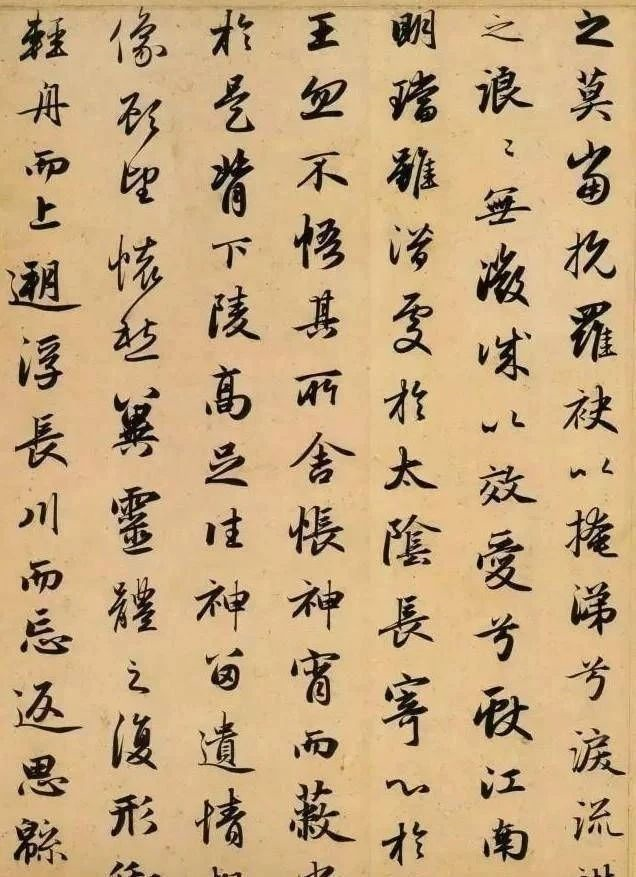 之莫當抗羅袂以掩涕兮淚流
之浪〻無微誠以效愛兮獻江南
明璫雖潛處於太陰長寄心於
王忽不悟其所舍悵神宵而蔽
於是背下陵高足往神留遺情
像顧望懷愁冀靈體之復形
輕舟而上遡浮長川而忘返思緜